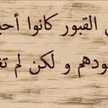 القبور كانوا أحي
ودهم و لكن لم تف